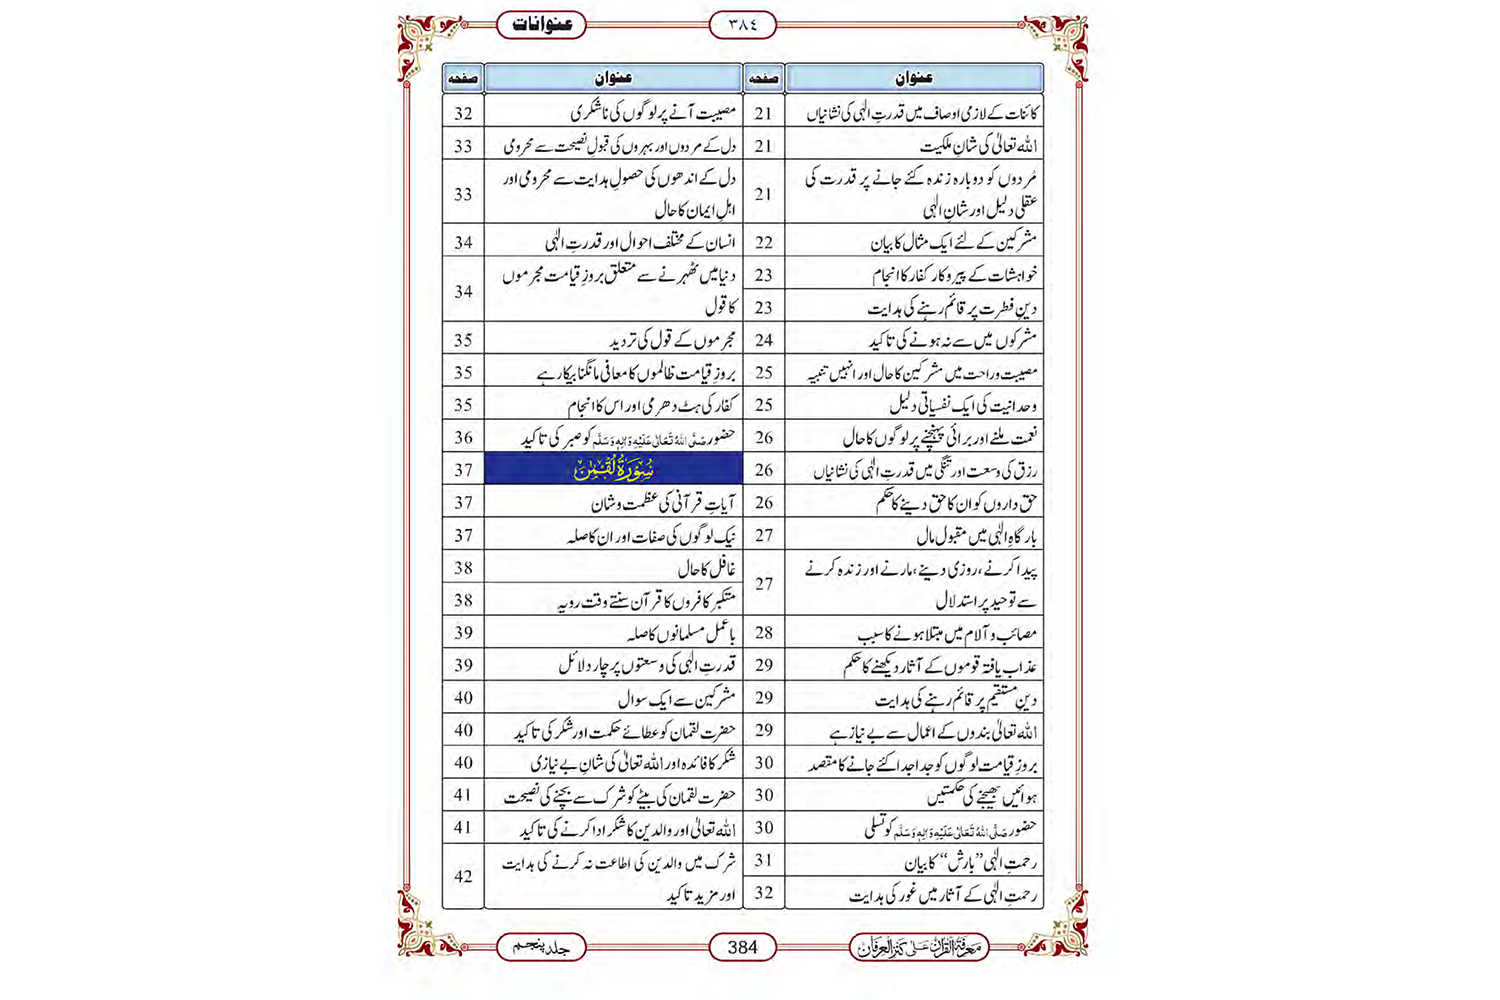 عنوانات
٣٨٤
عنوان صفحہ
کائنات کے لازمی اوصاف میں قدرتِ الٰہی کی نشانیاں 21
اللہ تعالیٰ کی شانِ ملکیت 21
مُردوں کو دوبارہ زندہ کئے جانے پر قدرت کی
عقلی دلیل اور شانِ الٰہی 21
مشرکین کے لئے ایک مثال کا بیان 22
خواہشات کے پیروکار کفار کا انجام 23
دینِ فطرت پر قائم رہنے کی ہدایت 23
مشرکوں میں سے نہ ہونے کی تاکید 24
مصیبت و راحت میں مشرکین کا حال اور انہیں تنبیہ 25
وحدانیت کی ایک نفسیاتی دلیل 25
نعمت ملنے اور برائی پہنچنے پر لوگوں کا حال 26
رزق کی وسعت اور تنگی میں قدرتِ الٰہی کی نشانیاں 26
حق داروں کو ان کا حق دینے کا حکم 26
بارگاہِ الٰہی میں مقبول مال 27
پیدا کرنے، روزی دینے، مارنے اور زندہ کرنے
سے توحید پر استدلال 27
مصائب و آلام میں مبتلا ہونے کا سبب 28
عذاب یافتہ قوموں کے آثار دیکھنے کا حکم 29
دینِ مستقیم پر قائم رہنے کی ہدایت 29
اللہ تعالیٰ بندوں کے اعمال سے بے نیاز ہے 29
بروزِ قیامت لوگوں کو جدا جدا کئے جانے کا مقصد 30
ہوائیں بھیجنے کی حکمتیں 30
حضور صَلَّی اللہُ تَعَالٰی عَلَیْہِ وَاٰلِہٖ وَسَلَّم کو تسلی 30
رحمتِ الٰہی ”بارش“ کا بیان 31
رحمتِ الٰہی کے آثار میں غور کی ہدایت 32
عنوان صفحہ
مصیبت آنے پر لوگوں کی ناشکری 32
دل کے مردوں اور بہروں کی قبولِ نصیحت سے محرومی 33
دل کے اندھوں کی حصولِ ہدایت سے محرومی اور
اہلِ ایمان کا حال 33
انسان کے مختلف احوال اور قدرتِ الٰہی 34
دنیا میں ٹھہرنے سے متعلق بروزِ قیامت مجرموں
کا قول 34
مجرموں کے قول کی تردید 35
بروزِ قیامت ظالموں کا معافی مانگنا بیکار ہے 35
کفار کی ہٹ دھرمی اور اس کا انجام 35
حضور صَلَّی اللہُ تَعَالٰی عَلَیْہِ وَاٰلِہٖ وَسَلَّم کو صبر کی تاکید 36
سُوْرَۃُ لُقْمٰن 37
آیاتِ قرآنی کی عظمت و شان 37
نیک لوگوں کی صفات اور ان کا صلہ 37
غافل کا حال 38
متکبر کافروں کا قرآن سنتے وقت رویہ 38
با عمل مسلمانوں کا صلہ 39
قدرتِ الٰہی کی وسعتوں پر چار دلائل 39
مشرکین سے ایک سوال 40
حضرت لقمان کو عطائے حکمت اور شکر کی تاکید 40
شکر کا فائدہ اور اللہ تعالیٰ کی شانِ بے نیازی 40
حضرت لقمان کی بیٹے کو شرک سے بچنے کی نصیحت 41
اللہ تعالیٰ اور والدین کا شکر ادا کرنے کی تاکید 41
شرک میں والدین کی اطاعت نہ کرنے کی ہدایت
اور مزید تاکید 42
معرفۃ القرآن علیٰ کنز العرفان
384
جلد پنجم